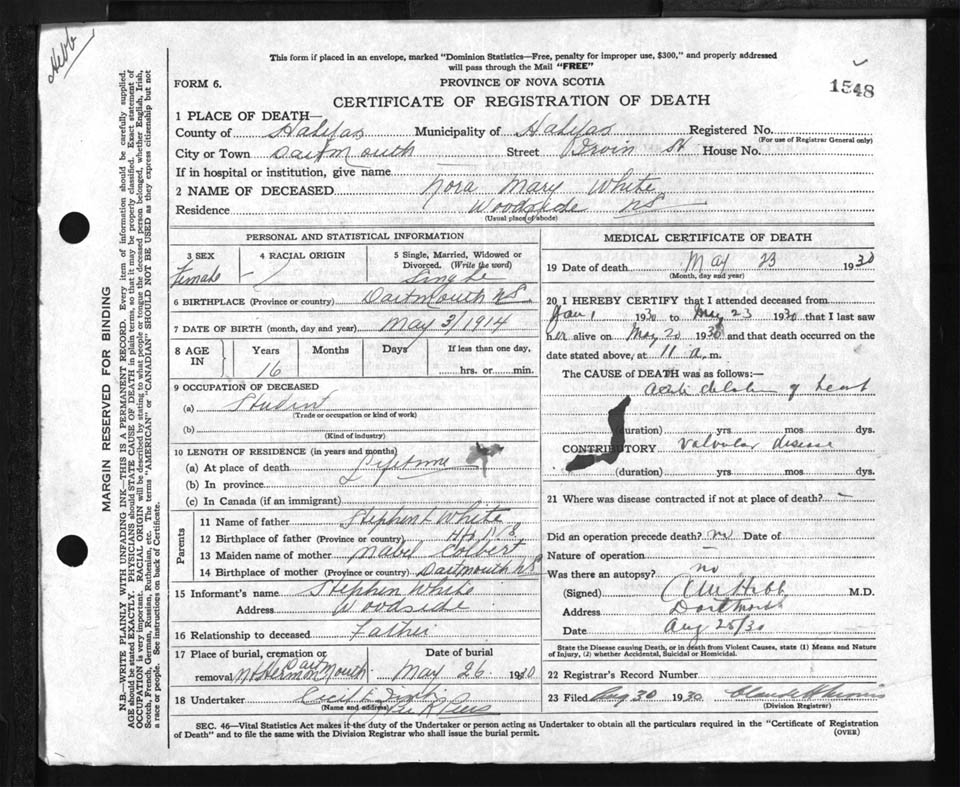 Hebb
This form if placed in an envelope, marked "Dominion Statistics—Free, penalty for improper use, $300," and properly addressed
will pass through the Mail "FREE"
FORM 6.
PROVINCE OF NOVA SCOTIA
1548
CERTIFICATE OF REGISTRATION OF DEATH
1 PLACE OF DEATH—
County of Halifax Municipality of Halifax Registered No.
(For use of Registrar General only)
City or Town Dartmouth Street St House No.
If in hospital or institution, give name
2 NAME OF DECEASED Nora Mary White
Residence Woodside NS
(Usual place of abode)
PERSONAL AND STATISTICAL INFORMATION
3 SEX 4 RACIAL ORIGIN 5 Single, Married, Widowed or
Divorced. (Write the word)
Female Single
6 BIRTHPLACE (Province or country) Dartmouth NS
7 DATE OF BIRTH (month, day and year) May 3/1914
8 AGE IN Years Months Days If less than one day,
16 hrs. or min.
9 OCCUPATION OF DECEASED
(a) Student
(Trade or occupation or kind of work)
(b)
(Kind of industry)
10 LENGTH OF RESIDENCE (in years and months)
(a) At place of death Lifetime
(b) In province
(c) In Canada (if an immigrant)
Parents
11 Name of father Stephen L White
12 Birthplace of father (Province or country) Hfx N.S.
13 Maiden name of mother Mabel Colbert
14 Birthplace of mother (Province or country) Dartmouth NS
15 Informant's name Stephen White
Address Woodside
16 Relationship to deceased Father
17 Place of burial, cremation or Date of burial
removal Mt Hermon Dartmouth. May 26 1930
18 Undertaker Cecil E
(Name and address)
MEDICAL CERTIFICATE OF DEATH
19 Date of death May 23 1930
(Month, day and year)
20 I HEREBY CERTIFY that I attended deceased from
Jan 1 1930 to May 23 1930 that I last saw
her alive on May 20 1930 and that death occurred on the
date stated above, at 11 a.m.
The CAUSE of DEATH was as follows:—
acute dilation of heart
(duration) yrs mos. dys.
CONTRIBUTORY Valvular disease
(duration) yrs. mos. dys.
21 Where was disease contracted if not at place of death? –
Did an operation precede death? no Date of
Nature of operation –
Was there an autopsy? no
(Signed) Hebb M.D.
Address Dartmouth
Date Aug 25/30
State the Disease causing Death, or in death from Violent Causes, state (1) Means and Nature
of Injury, (2) whether Accidental, Suicidal or Homicidal.
22 Registrar's Record Number
23 Filed Aug 30 1930
(Division Registrar)
SEC. 46—Vital Statistics Act makes it the duty of the Undertaker or person acting as Undertaker to obtain all the particulars required in the "Certificate of Registration
of Death" and to file the same with the Division Registrar who shall issue the burial permit.
(OVER)
MARGIN RESERVED FOR BINDING
N.B.—WRITE PLAINLY WITH UNFADING INK—THIS IS A PERMANENT RECORD. Every item of information should be carefully supplied.
AGE should be stated EXACTLY. PHYSICIANS should STATE CAUSE OF DEATH in plain terms, so that it may be properly classified. Exact statement of
OCCUPATION is very important. RACIAL ORIGIN will be described by stating to what people or tongue the deceased person belonged, whether English, Irish,
Scotch, French, German, Russian, Ruthenian, etc. The terms "AMERICAN" or "CANADIAN" SHOULD NOT BE USED as they express citizenship but not
a race or people. See instructions on back of Certificate.